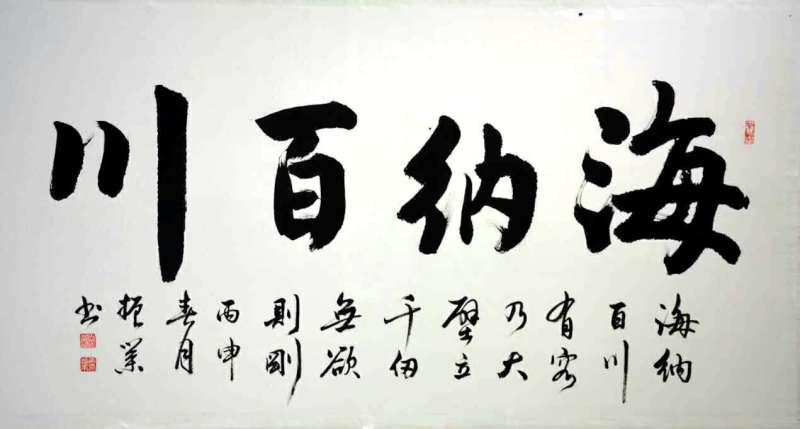 海纳百川
海纳
百川
有容
乃大
壁立
千仞
無欲
則剛
丙申
春月
振業
书